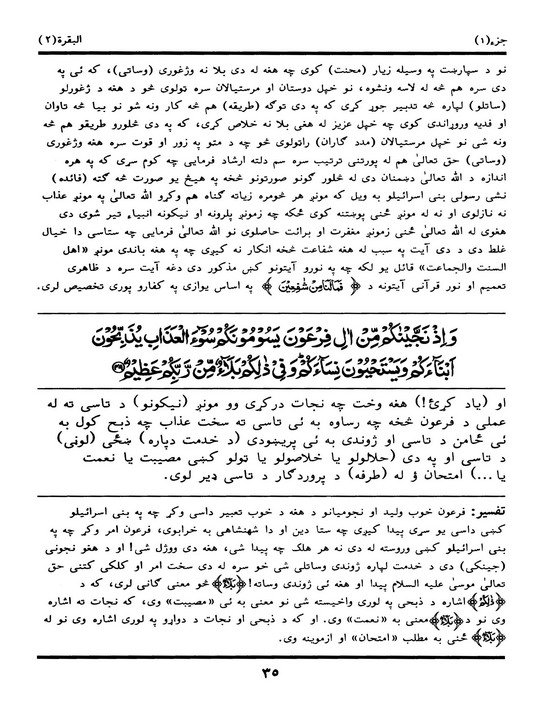 جزء(۱) البقرة(۲)
نو د سپارښت په وسيله زيار (محنت) کوی چه هغه له دی بلا نه وژغوری (وساتی)، که ئې په
دی سره هم څه له لاسه ونشوه، نو خپل دوستان او مرستيالان سره ټولوی څو د هغه د ژغورلو
(ساتلو) لپاره څه تدبير جوړ کړی که په دی توګه (طريقه) هم څه کار ونه شو نو بيا څه تاوان
او فديه وروړاندی کوی چه خپل عزيز له هغی بلا نه خلاص کړی، که په دی څلورو طريقو هم څه
ونه شی نو خپل مرستيالان (مدد ګاران) راټولوی څو چه د متو په زور او قوت سره هغه وژغوری
(وساتی) حق تعالیٰ هم له پورتنی ترتيب سره سم دلته ارشاد فرمايی چه کوم سړی که په هره
اندازه د الله تعالیٰ دښمنان دی له څلور ګونو صورتونو څخه په هيڅ يو صورت څه ګټه (فائده)
نشی رسولی بنی اسرائيلو به ويل که مونږ هر څومره زياته ګناه هم وکړو الله تعالیٰ په مونږ عذاب
نه نازلوی او نه له مونږ څنی پوښتنه کوی ځکه چه زمونږ پلرونه او نيکونه انبياء تير شوی دی
هغوی له الله تعالیٰ څنی زمونږ مغفرت او برائت حاصلوی نو الله تعالیٰ فرمايی چه ستاسی دا خيال
غلط دی د دی آيت په سبب له هغه شفاعت څخه انکار نه کيږی چه په هغه باندی مونږ «اهل
السنت والجماعت» قائل يو لکه چه په نورو آيتونو کښ مذکور دی دغه آيت سره د ظاهری
تعميم او نور قرآنی آيتونه د ﴿ فَمَالَنَامِنْ شٰفِعِيْنَ ﴾ په اساس يوازی په کفارو پوری تخصيص لری.
وَاِذْ نَجَّيْنٰكُمْ مِّنْ اٰلِ فِرْعَوْنَ يَسُوْمُوْنَكُمْ سُوْٓءَ الْعَذَابِ يُذَبِّحُوْنَ
اَبْنَآءَكُمْ وَيَسْتَحْيُوْنَ نِسَآءَكُمْ وَفِيْ ذٰلِكُمْ بَلَآءٌ مِّنْ رَّبِّكُمْ عَظِيْمٌ
او (ياد کړئ!) هغه وخت چه نجات درکړی وو مونږ (نيکونو) د تاسی ته له
عملی د فرعون څخه چه رساوه به ئی تاسی ته سخت عذاب چه ذبح کول به
ئی ځامن د تاسی او ژوندی به ئی پريښودی (د خدمت دپاره) ښځی (لوڼی)
د تاسی او په دی (حلالولو يا خلاصولو يا ټولو کښی مصيبت يا نعمت
يا ...) امتحان ؤ له (طرفه) د پروردګار د تاسی ډير لوی.
تفسير: فرعون خوب وليد او نجوميانو د هغه د خوب تعبير داسی وکړ چه په بنی اسرائيلو
کښی داسی يو سړی پيدا کيږی چه ستا دين او دا شهنشاهی به خرابوی، فرعون امر وکړ چه په
بنی اسرائيلو کښی وروسته له دی نه هر هلک چه پيدا شی، هغه دی ووژل شی! او د هغو نجونی
(جينکی) دی د خدمت لپاره ژوندی وساتلی شی خو سره له دی سخت امر او کلکی کتنی حق
تعالیٰ موسیٰ عليه السلام پيدا او هغه ئی ژوندی وساته! ﴿بَلَآءٌ﴾ څو معنی ګانی لری، که د
﴿ذٰلِكُمْ﴾ اشاره د ذبحی په لوری واخيسته شی نو معنی به ئی «مصيبت» وی، که نجات ته اشاره
وی نو د ﴿بَلَآءٌ﴾ معنی به «نعمت» وی. او که د ذبحی او نجات د دواړو په لوری اشاره وی نو له
﴿بَلَآءٌ﴾ څنی به مطلب «امتحان» او ازموينه وی.
۳۵